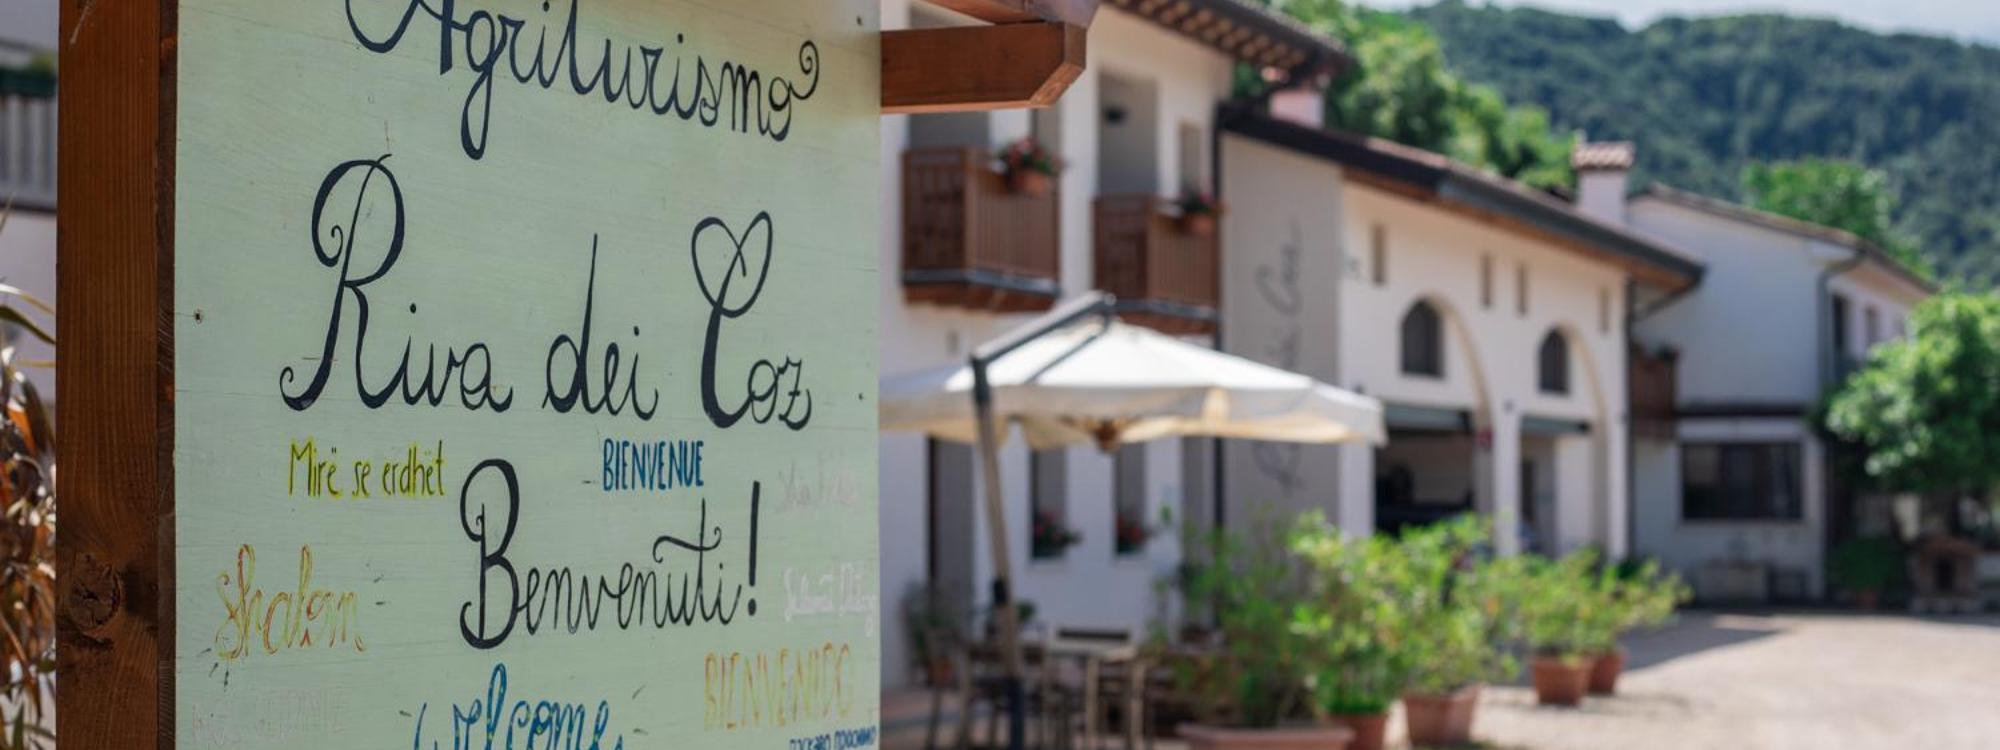 Agriturismo
Riva dei Coz
Mirë se erdhët BIENVENUE
Benvenuti!
Shalom
BIENVENIDO
welcome